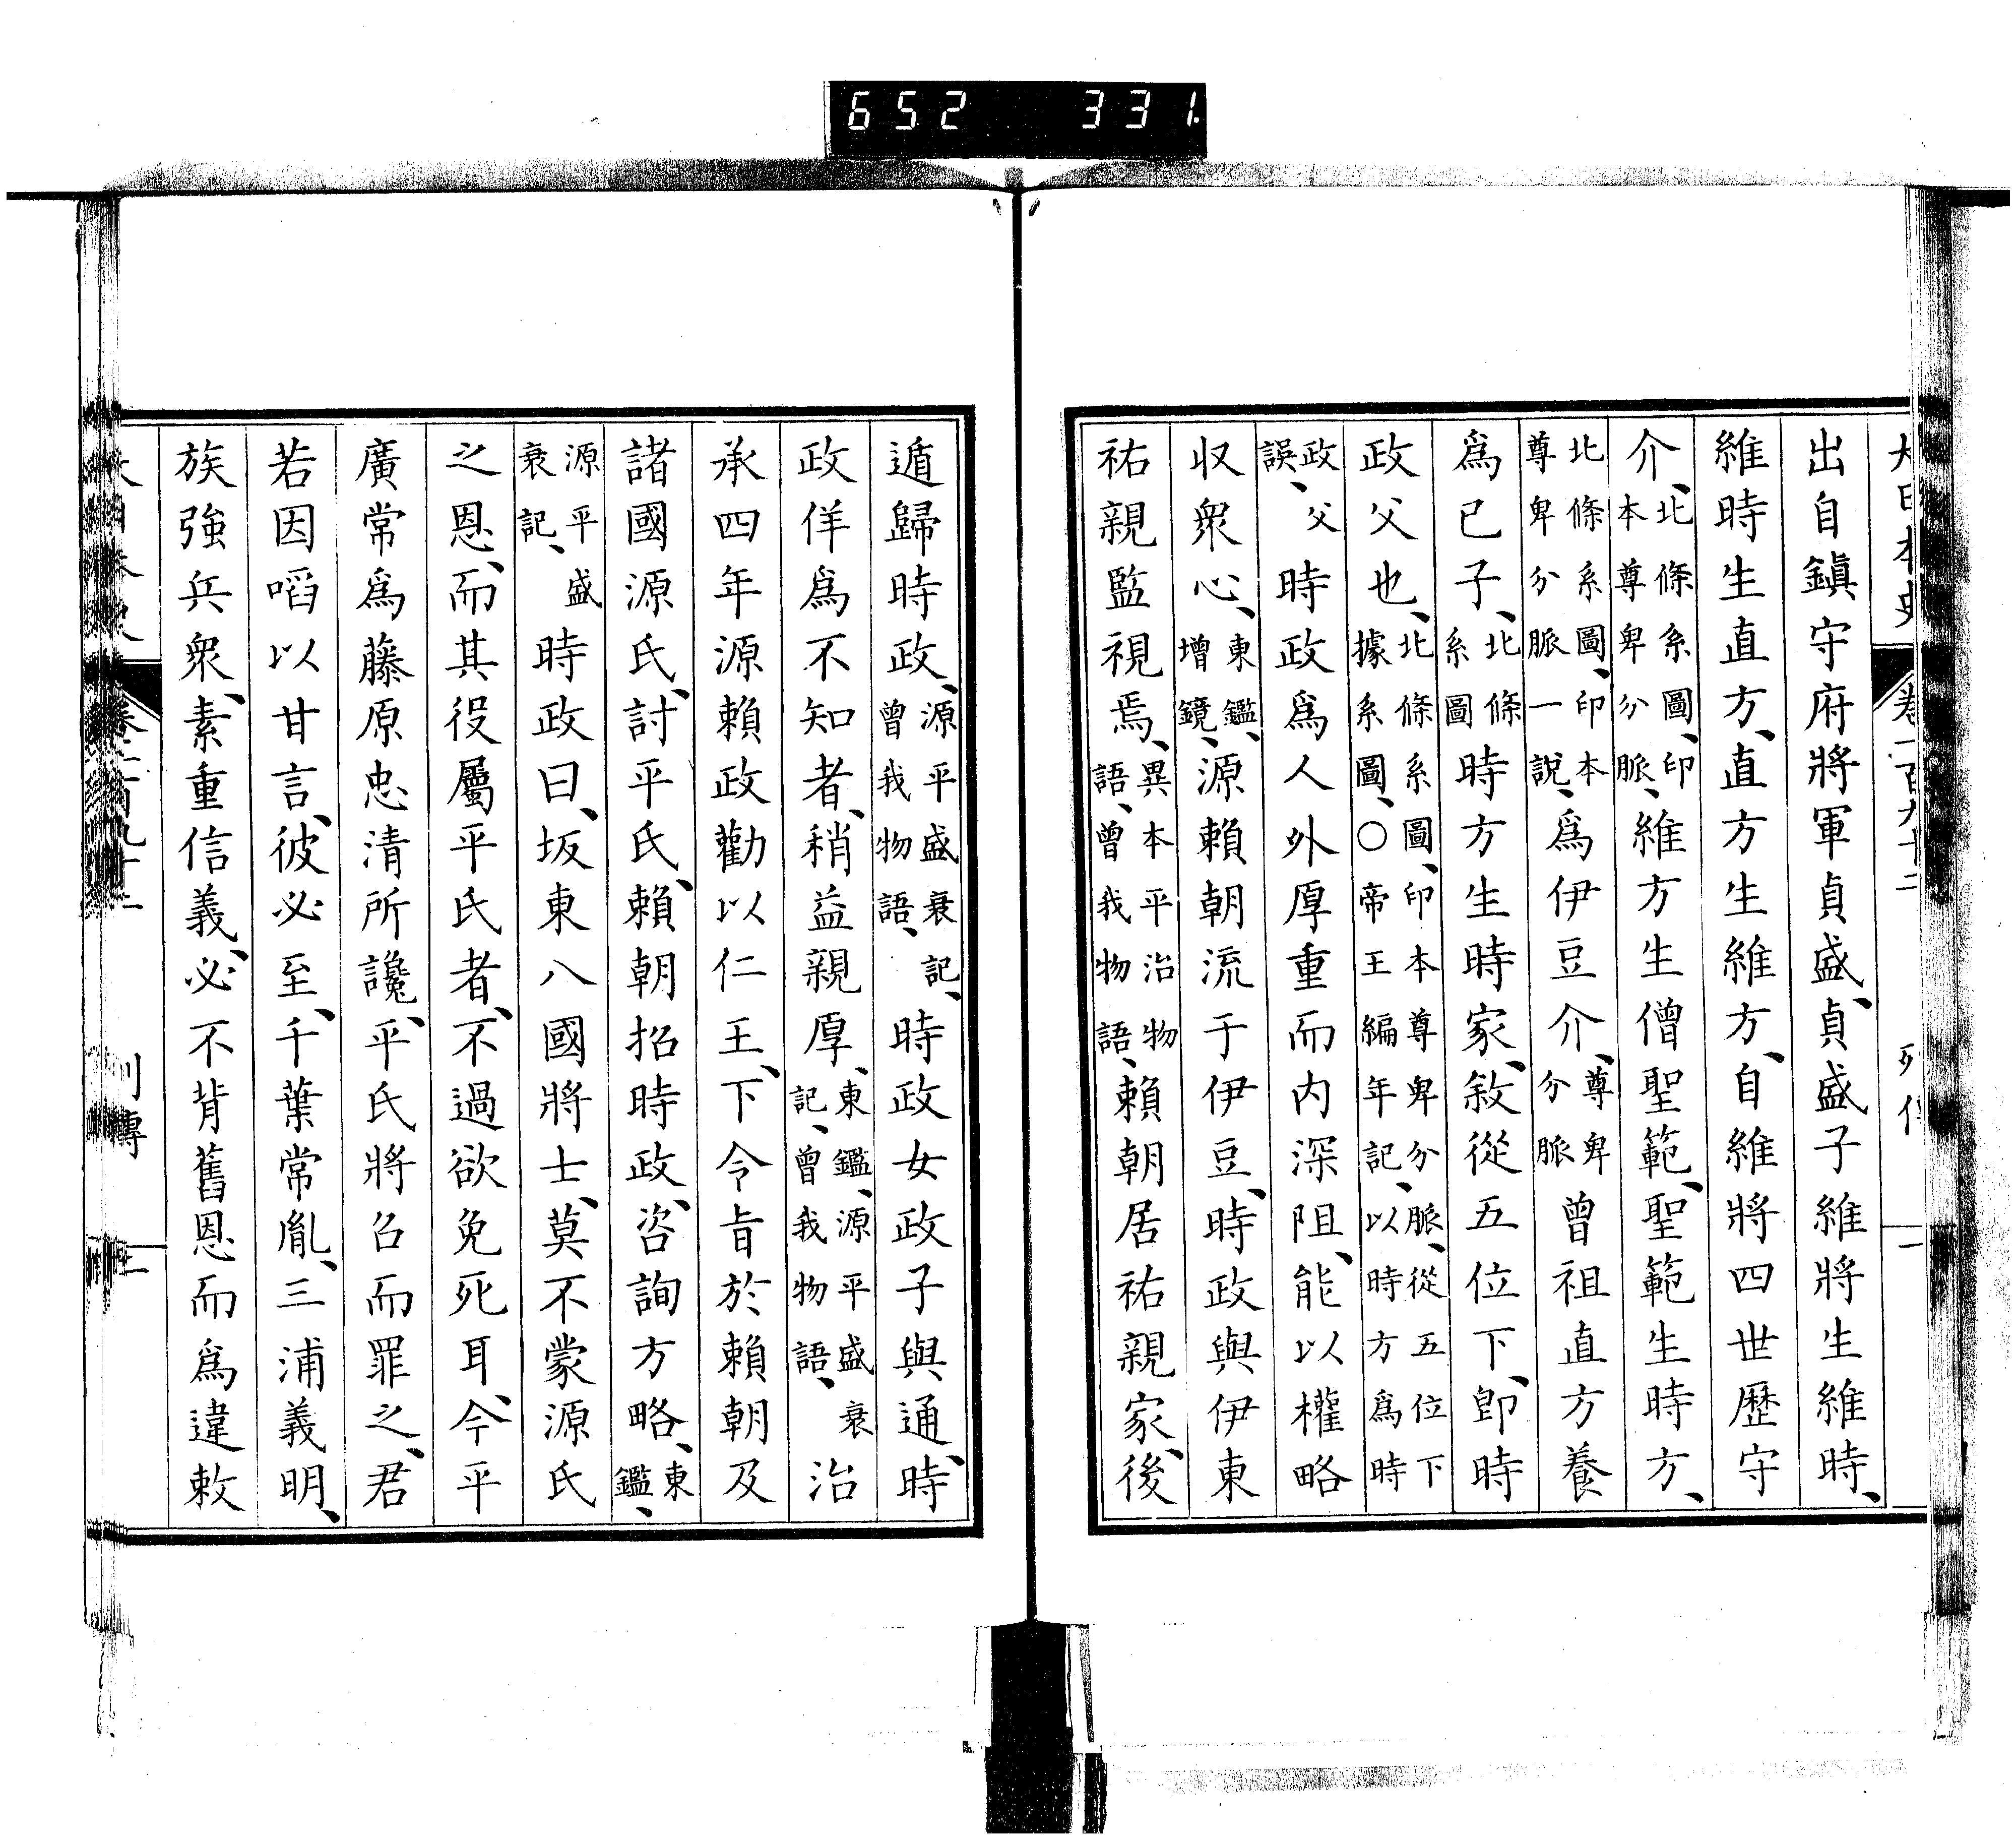 652 331.
出自鎭守府將軍貞盛、貞盛子維將生維時、
維時生直方、直方生維方、自維將四世歷守
介、北條系圖、印本尊卑分脈、維方生僧聖範、聖範生時方、
北條系圖、印本尊卑分脈一說、爲伊豆介、尊卑分脈曾祖直方養
爲己子、北條系圖時方生時家、敘從五位下、卽時
政父也、北條系圖、印本尊卑分脈、從五位下據系圖、○帝王編年記、以時方爲時
政父誤、時政爲人外厚重而内深阻、能以權略
収衆心、東鑑、增鏡、源賴朝流于伊豆、時政與伊東
祐親監視焉、異本平治物語、曾我物語、賴朝居祐親家、後
遁歸時政、源平盛衰記、曾我物語、時政女政子與通、時
政佯爲不知者、稍益親厚、東鑑、源平盛衰記、曾我物語、治
承四年源賴政勸以仁王、下令旨於賴朝及
諸國源氏、討平氏、賴朝招時政、咨詢方略、東鑑、
源平盛衰記、時政曰、坂東八國將士、莫不蒙源氏
之恩、而其役屬平氏者、不過欲免死耳、今平
廣常爲藤原忠清所讒、平氏將召而罪之、君
若因啗以甘言、彼必至、千葉常胤、三浦義明、
族強兵衆、素重信義、必不背舊恩而爲違敕